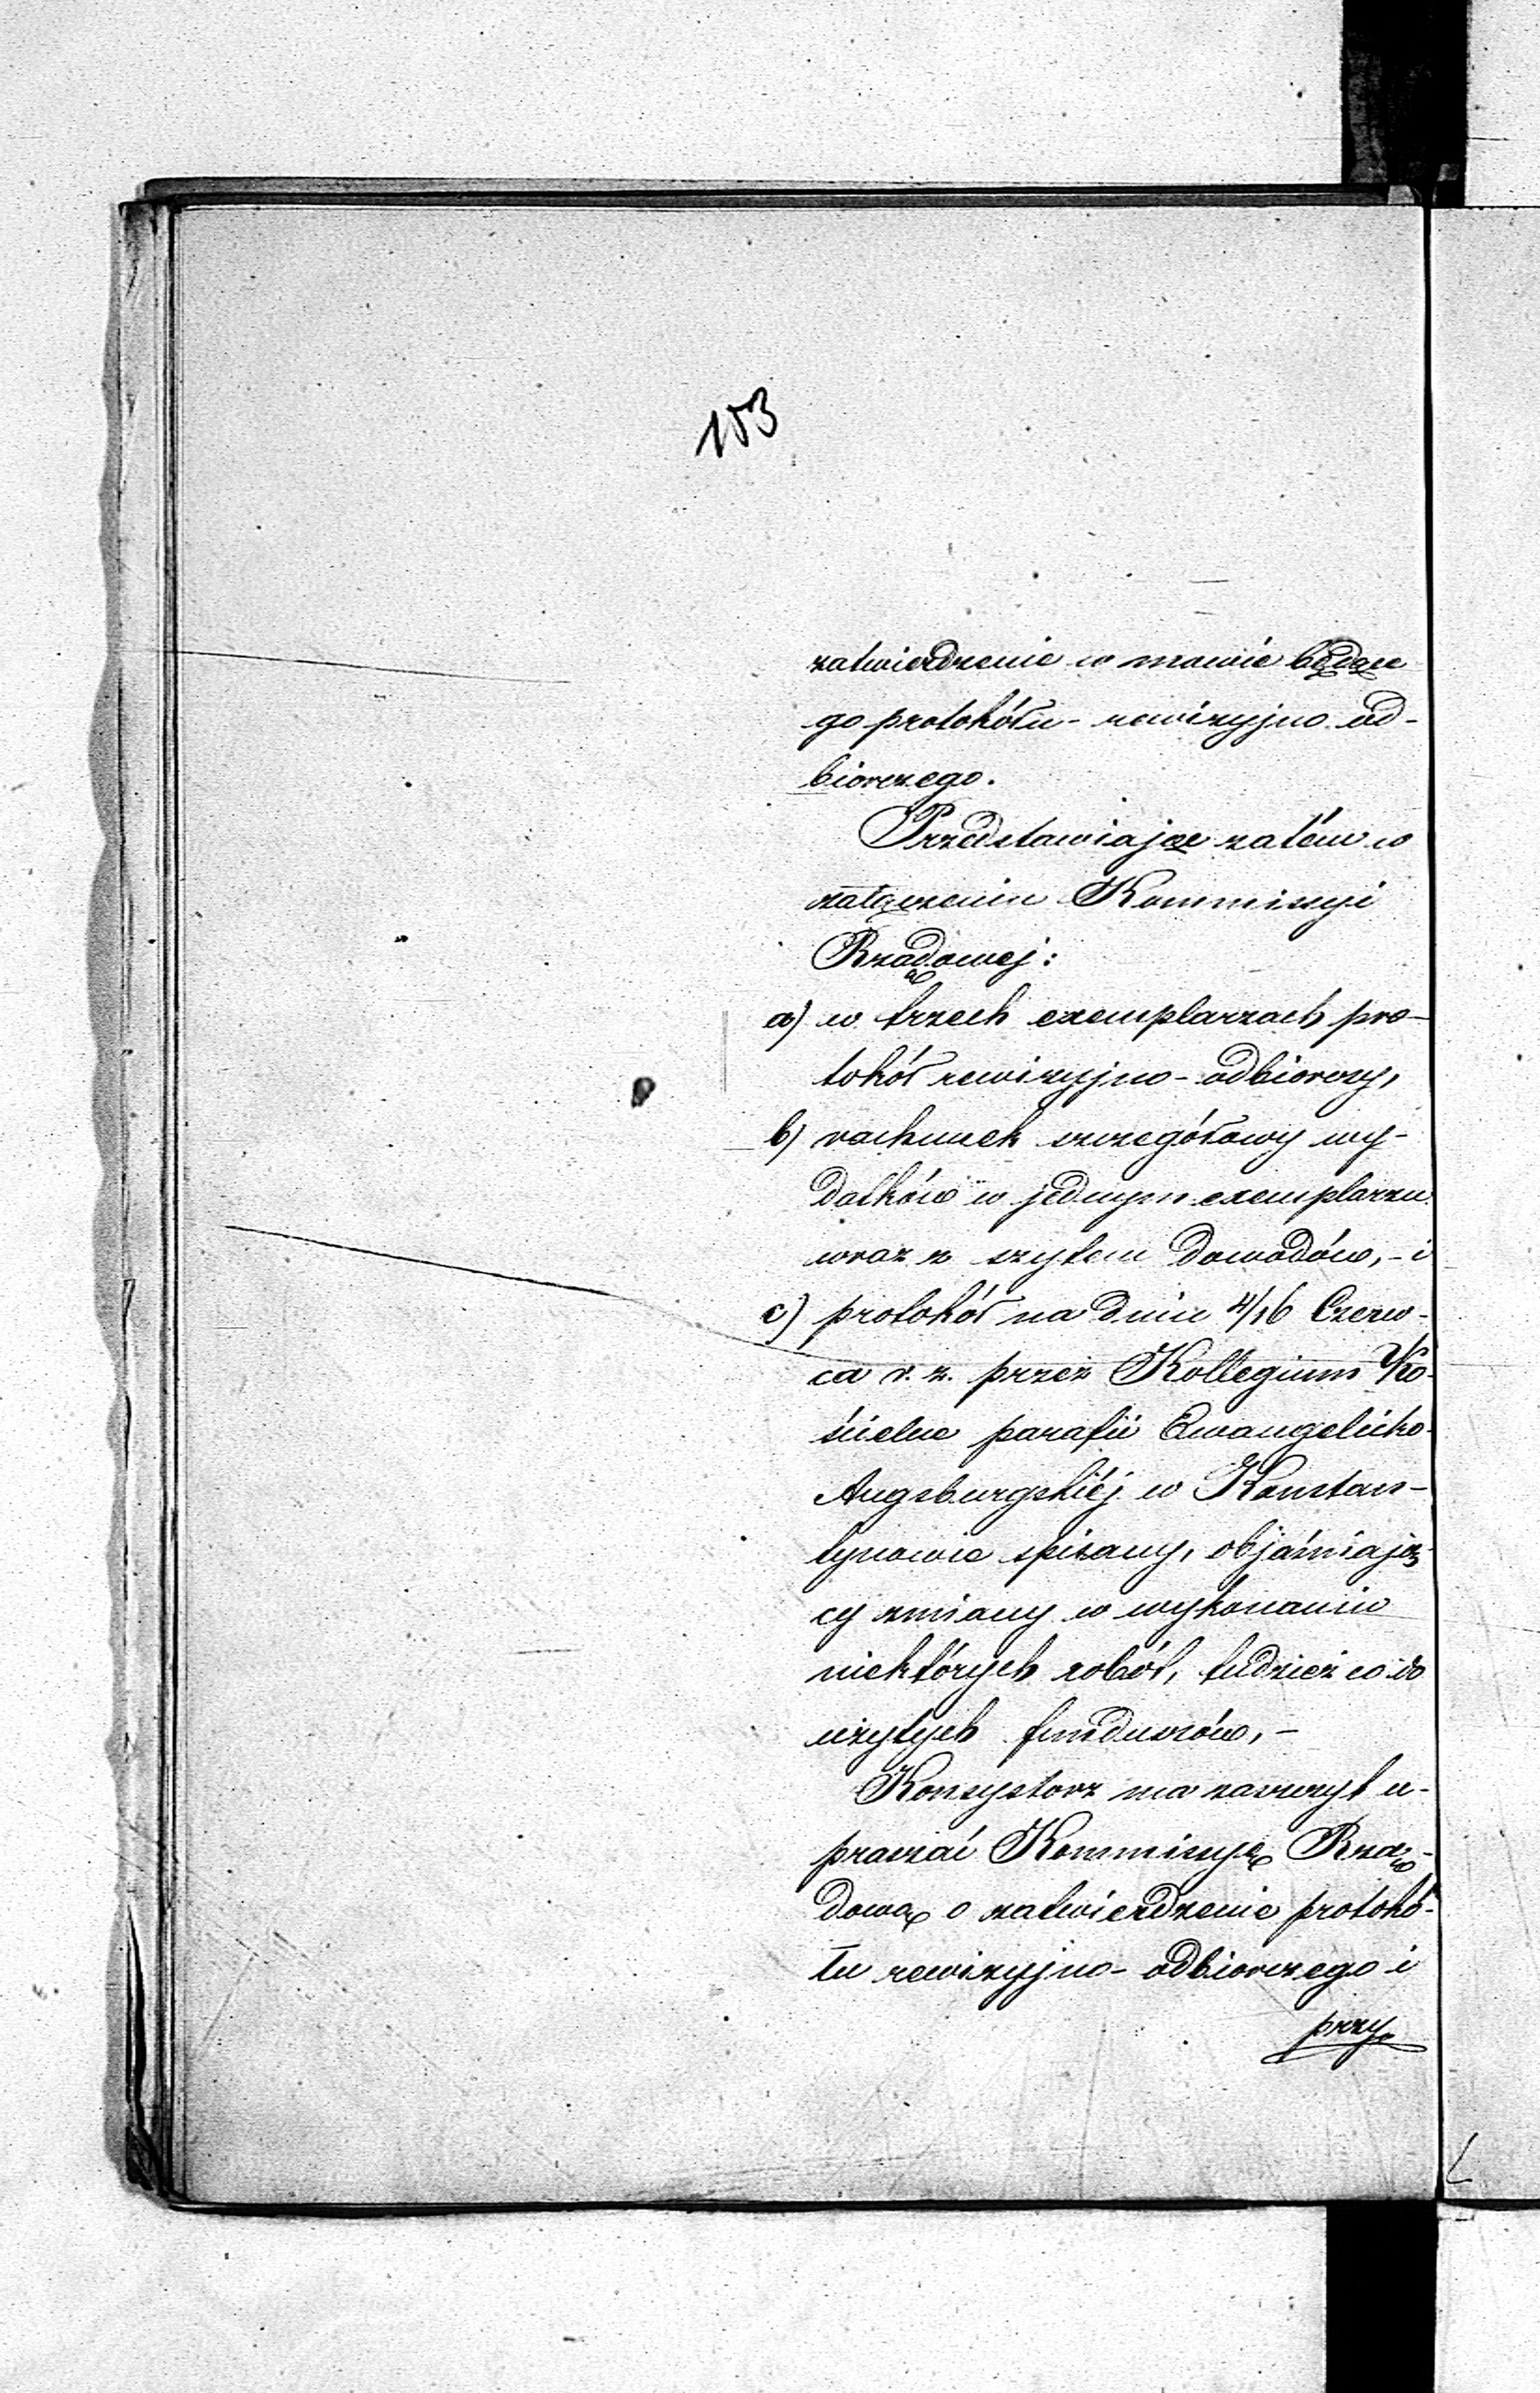 153
zatwierdzenie w mowie będące
go protokółu - rewizyjno od-
biorczego.
Przedstawiając zatém w
załączeniu Kommissyi
Rządowej:
a) w trzech exemplarzach pro-
tokół rewizyjno - odbiorczy,
b) rachunek szczegółowy wy-
datków w jednym exemplarzu
wraz z szytem dowodów, - i
c) protokół na dniu 4/16 Czerw-
ca r. z. przez Kollegium Ko-
ścielne parafii Ewangelicko-
Augsburgskiéj w Konstan-
tynowie spisany, objaśniają-
cy zmiany w wykonaniu
niektórych robót, tudzież co do
użytych funduszów, -
Konsystorz ma zaszczyt u-
praszać Kommissyę Rzą-
dową o zatwierdzenie protokó-
łu rewizyjno - odbiorczego i
przy